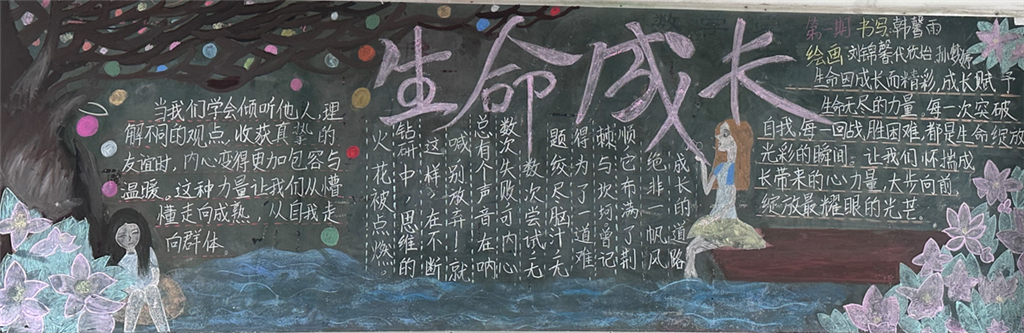 生命成长
当我们学会倾听他人,理
解不同的观点,收获真挚的
友谊时,内心变得更加包容与
温暖。这种力量让我们从懵
懂走向成熟,从自我走
向群体
成长的道路
绝非一帆风
顺,它布满了荆
棘与坎坷,曾记
得为了一道难
题绞尽脑汁,无
数次尝试,无
数次失败,可内心
总有个声音在呐
喊:别放弃!就
这样,在不断
钻研中,思维的
火花被点燃。
第一期 书写:韩馨雨
绘画:刘锦馨代欣怡 孙
生命因成长而精彩,成长赋予
生命无尽的力量,每一次突破
自我,每一回战胜困难,都是生命绽放
光彩的瞬间。让我们怀揣成
长带来的心力量,大步向前
绽放最耀眼的光芒。